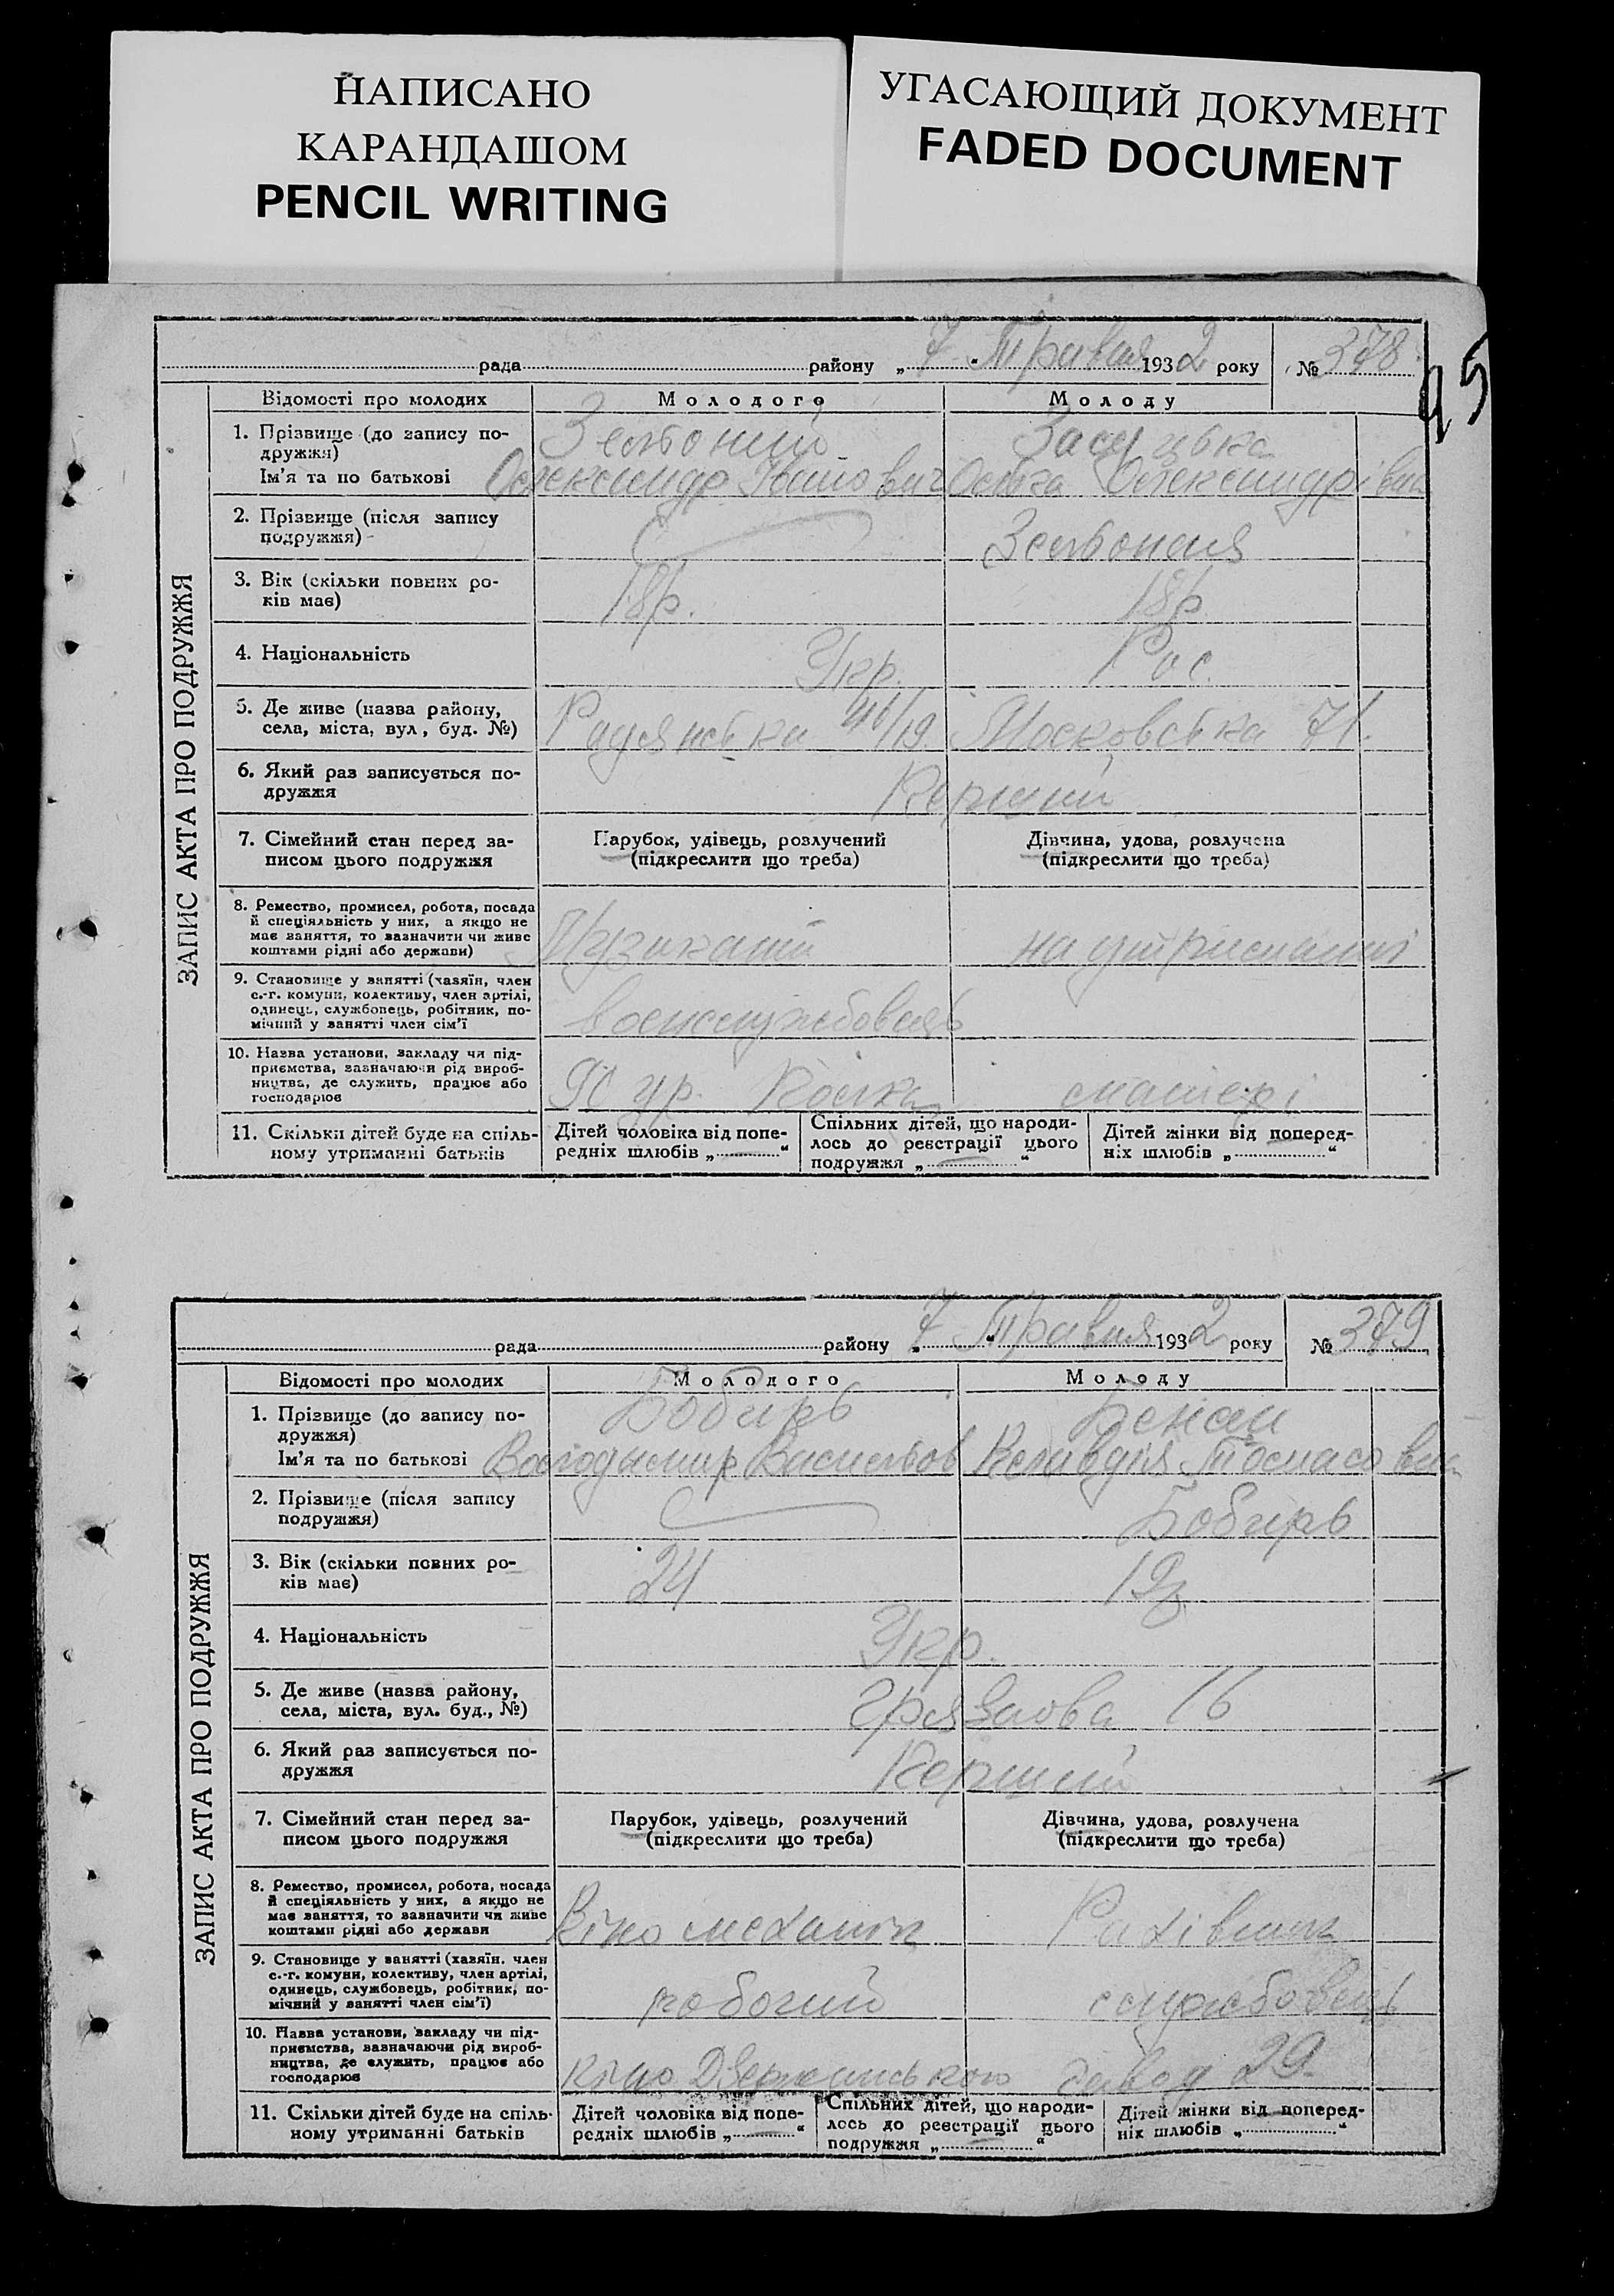 НАПИСАНО
КАРАНДАШОМ
PENCIL WRITING
УГАСАЮЩИЙ ДОКУМЕНТ
FADED DOCUMENT
95
ЗАПИС АКТА ПРО ПОДРУЖЖЯ
рада района „7“ Травня 1932 року № 378
Відомості про молодих Молодого Молоду
1. Прізвище (до запису по-
дружжя)
Ім'я та по батькові Олександр Іванович Ольга Олександрівна
2. Прізвище (після запису
подружжя)
3. Вік (скільки повних ро-
ків має) 18р. 18р.
4. Національність Укр. Рос.
5. Де живе (назва району,
села, міста, вул, буд. №) Радянська 46/19. Московська 71.
6. Який раз записується по-
дружжя Перший
7. Сімейний стан перед за-
писом цього подружжя
Парубок, удівець, розлучений
(підкреслити що треба)
Дівчина, удова, розлучена
(підкреслити що треба)
8. Ремество, промисел, робота, посада
й спеціяльність у них, а якщо не
має заняття, то зазначити чи живе
коштами рідні або держави) Музикант на утриманні
9. Становище у занятті (хазяїн, член
с.-г. комуни, колективу, член артілі,
одинець, службовець, робітник, по-
мічний у занятті член сім'ї військслужбовець
10. Назва установи, закладу чи під-
приємства, зазначаючи рід вироб-
ництва, де служить, працює або
господарює матері
11. Скільки дітей буде на спіль-
ному утриманні батьків
Дітей чоловіка від попе-
редніх шлюбів „—“
Спільних дітей, що народи-
лось до реєстрації цього
подружжя „—“
Дітей жінки від поперед-
ніх шлюбів „“
ЗАПИС АКТА ПРО ПОДРУЖЖЯ
рада району „7“ Травня 1932 року № 379
Відомості про молодих Молодого Молоду
1. Прізвище (до запису по-
дружжя) Бобирь
Ім'я та по батькові Володимир Васильов Клавдія
2. Прізвище (після запису
подружжя) Бобирь
3. Вік (скільки повних ро-
ків має) 24 19
4. Національність Укр.
5. Де живе (назва району,
села, міста, вул. буд., №) 16
6. Який раз записується по-
дружжя Перший
7. Сімейний стан перед за-
писом цього подружжя
Парубок, удівець, розлучений
(підкреслити що треба)
Дівчина, удова, розлучена
(підкреслити що треба)
8. Ремество, промисел, робота, посада
й спеціяльність у них, а якщо не
має заняття, то зазначити чи живе
коштами рідні або держави Кіномеханік Рахівник
9. Становище у занятті (хазяїн. член
с.-г. комуни, колективу, член артілі,
одинець, службовець, робітник, по-
мічний у занятті член сім'ї) робочий службовець
10. Назва установи, закладу чи під-
приємства, зазначаючи рід вироб-
ництва, де служить, працює або
господарює Кіно Дзержинського завод 29.
11. Скільки дітей буде на спіль-
ному утриманні батьків
Дітей чоловіка від попе-
редніх шлюбів „—“
Спільних дітей, що народи-
лось до реєстрації цього
подружжя „—“
Дітей жінки від поперед-
ніх шлюбів „—“